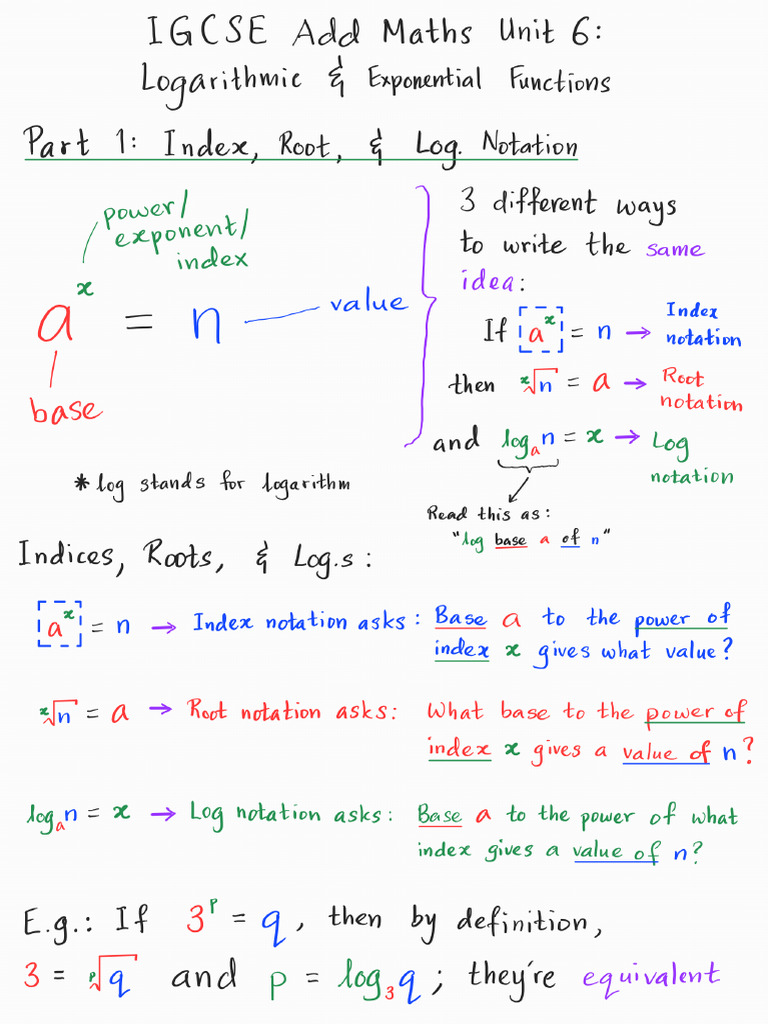 IGCSE Add Maths Unit 6:
Logarithmic & Exponential Functions
Part 1: Index, Root, & Log. Notation
power/
exponent/
index
aˣ = n
value
base
*log stands for logarithm
3 different ways
to write the same
idea:
If aˣ = n → Index
notation
then ˣ√n = a → Root
notation
and logₐn = x → Log
notation
Read this as:
"log base a of n"
Indices, Roots, & Log.s:
aˣ = n → Index notation asks: Base a to the power of
index x gives what value?
ˣ√n = a → Root notation asks: What base to the power of
index x gives a value of n?
logₐn = x → Log notation asks: Base a to the power of what
index gives a value of n?
E.g.: If 3ᵖ = q, then by definition,
3 = ᵖ√q and p = log₃q; they're equivalent